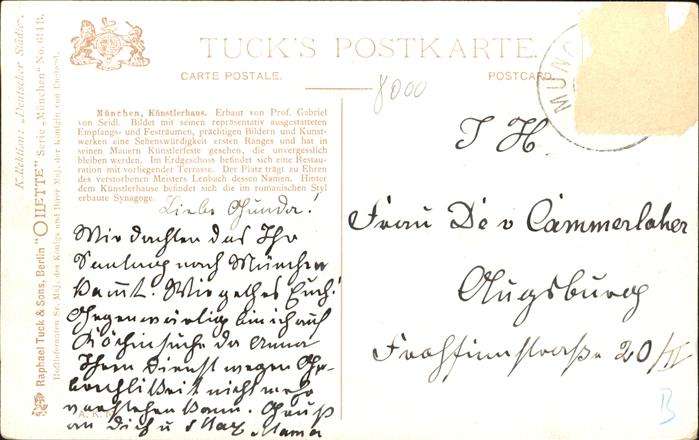 TUCK'S POSTKARTE.
CARTE POSTALE.
POSTCARD.
8000
MÜN
München, Künstlerhaus. Erbaut von Prof. Gabriel
von Seidl. Bildet mit seinen repräsentativ ausgestatteten
Empfangs- und Festräumen, prächtigen Bildern und Kunst-
werken eine Sehenswürdigkeit ersten Ranges und hat in
seinen Mauern Künstlerfeste gesehen, die unvergesslich
bleiben werden. Im Erdgeschoss befindet sich eine Restau-
ration mit vorliegender Terrasse. Der Platz trägt zu Ehren
des verstorbenen Meisters Lenbach dessen Namen. Hinter
dem Künstlerhause befindet sich die im romanischen Styl
erbaute Synagoge.
Liebe Gunda!
Wir dachten das Ihr
Sonntag nach München
kommt. Wie geht es Euch!
Gegenwärtig bin ich auf
Köchinsuche da Anna
Ihren Dienst wegen
nicht mehr
versehen kann. Gruß
an Dich u Max Mama
I H.
Frau Dr v Cammerloher
Augsburg
20/II
B
Raphael Tuck & Sons, Berlin "OILETTE" Serie „München" No. 614 B.
Hoflieferanten Sr. Maj. des Königs und Ihrer Maj. der Königin von England.